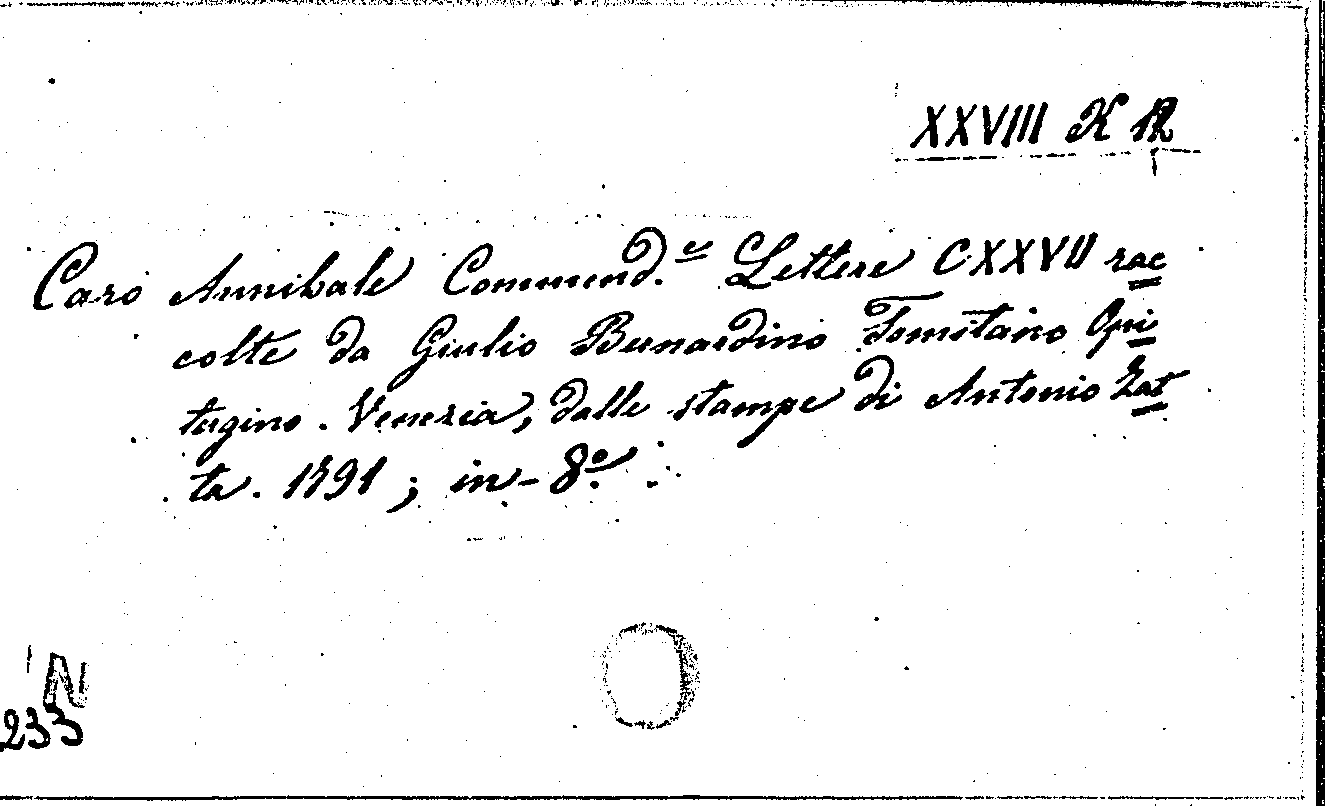 XXVIII K 12
Caro Annibale Commend.re Lettere CXXVII rac
colte da Giulio Bernardino Tomitano Opi
tergino. Venezia, dalle stampe di Antonio Zat
ta. 1791; in-8º.
N
233